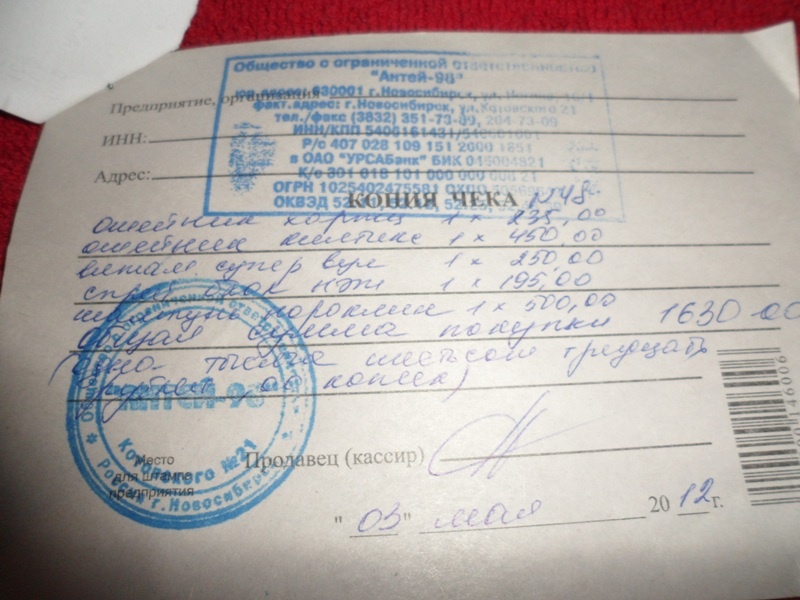 Общество с ограниченной ответственностью
"Антей-98"
юр.адрес: 630001 г.Новосибирск, ул.
Предприятие, организация
факт.адрес: г.Новосибирск, ул.Котовского 21
тел./факс (3832) 351-73-09, 204-73-09
ИНН:
ИНН/КПП 5406161431/
Р/с 407 028 109 151 2000 1851
в ОАО "УРСАБанк" БИК 045004821
Адрес:
К/с 301 018 101 000 000 008 21
ОГРН 1025402475581 ОКПО
ОКВЭД
КОПИЯ ЧЕКА №48.
ошейник 1 × 235,00
ошейник килтикс 1 × 450,00
супер вул 1 × 250,00
спрей 1 × 195,00
шампунь 1 × 500,00
Общая сумма покупки 1630-00
(одна тысяча шестьсот тридцать
рублей 00 копеек)
АНТЕЙ-98
Котовского №21
Россия г.Новосибирск
Место
для штампа
предприятия
Продавец (кассир)
"03" мая 2012 г.
146006